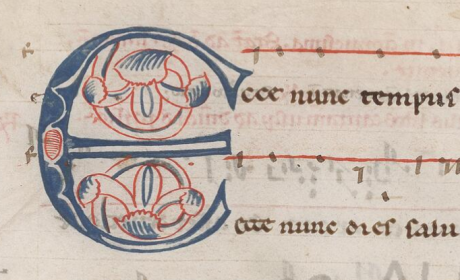 Ecce nunc tempus
ecce nunc dies salu